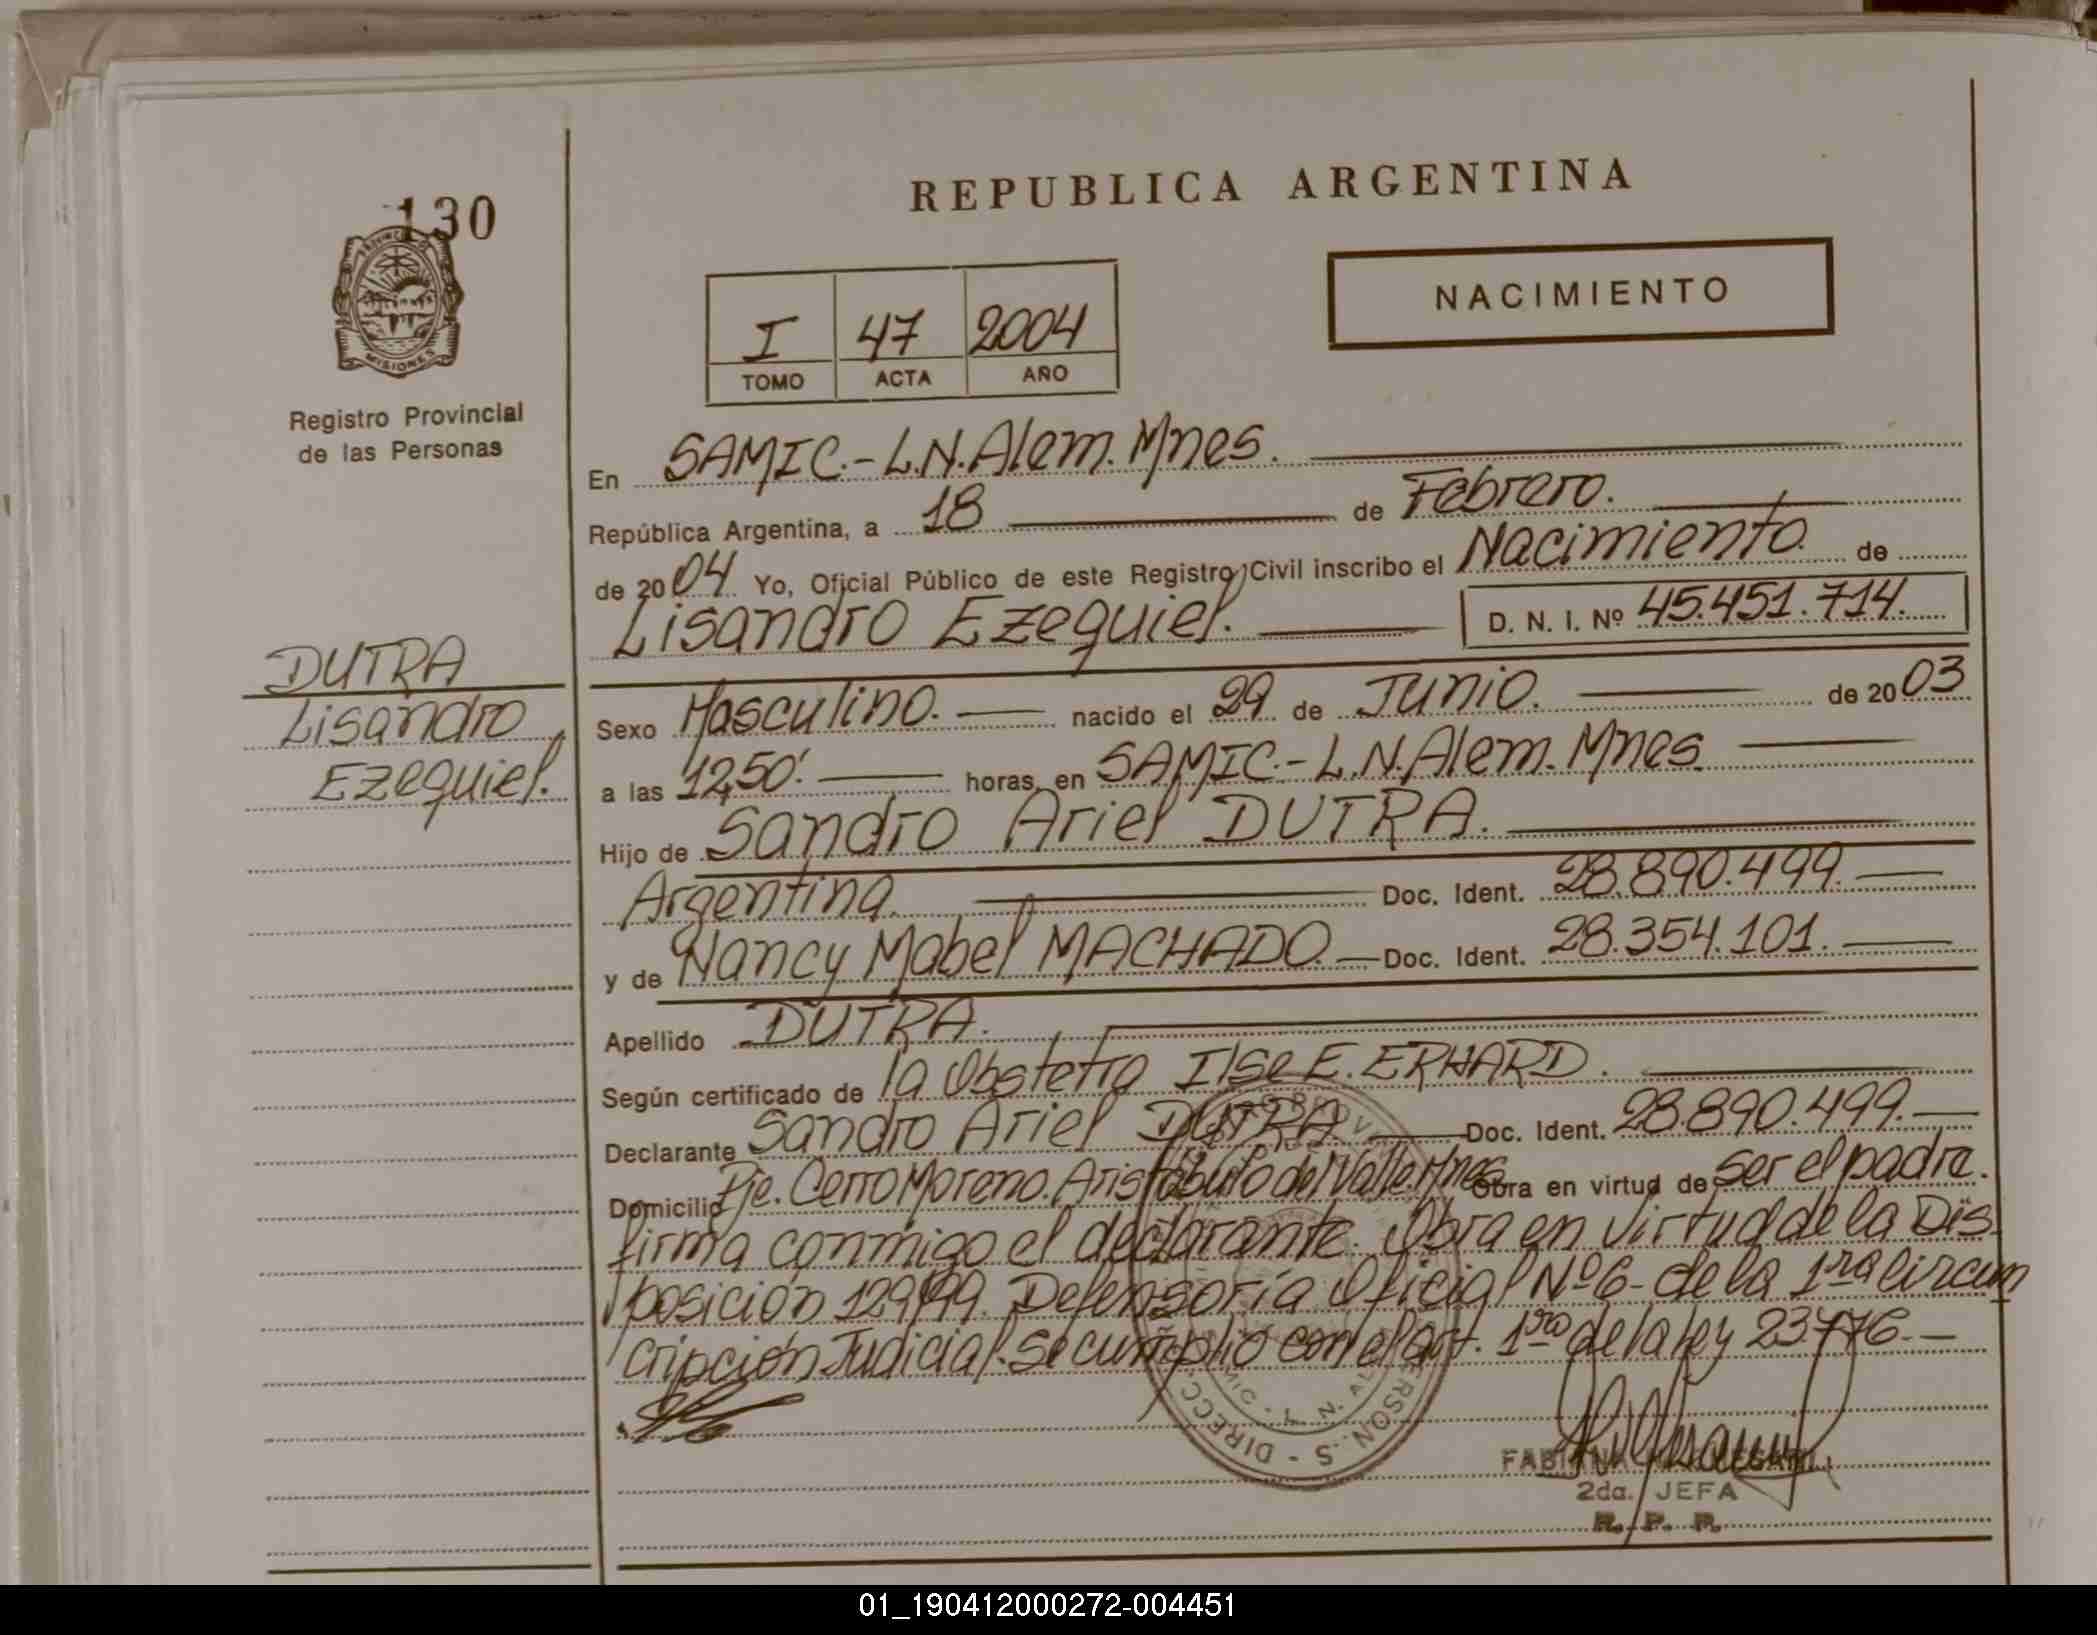 REPUBLICA ARGENTINA
130
NACIMIENTO
I 47 2004
TOMO ACTA AÑO
MISIONES
Registro Provincial
de las Personas
En SAMIC.-L.N.Alem.Mnes.
República Argentina, a 18 de Febrero.
de 2004 Yo, Oficial Público de este Registro Civil inscribo el Nacimiento de
Lisandro Ezequiel. D. N. I. Nº 45.451.714.
DUTRA
Lisandro
Ezequiel.
Sexo Masculino. nacido el 29 de Junio. de 2003
a las 12,50'. horas, en SAMIC.-L.N.Alem.Mnes
Hijo de Sandro Ariel DUTRA.
Argentina. Doc. Ident. 28.890.499.
y de Nancy Mabel MACHADO. Doc. Ident. 28.354.101.
Apellido DUTRA.
Según certificado de la Obstetra Ilse E. ERHARD.
Declarante Sandro Ariel DUTRA Doc. Ident. 28.890.499.
Domicilio Pje. Cerro Moreno. Aristóbulo del Valle. Mnes Obra en virtud de Ser el padre.
firma conmigo el declarante. Obra en virtud de la Dis
posición 129/99. Defensoría Oficial Nº 6- de la 1ra circun
cripción Judicial. Se cumplio con el art. 1ro de la ley 23776.-
FABIANA
2da. JEFA
R. P. P.
01_190412000272-004451